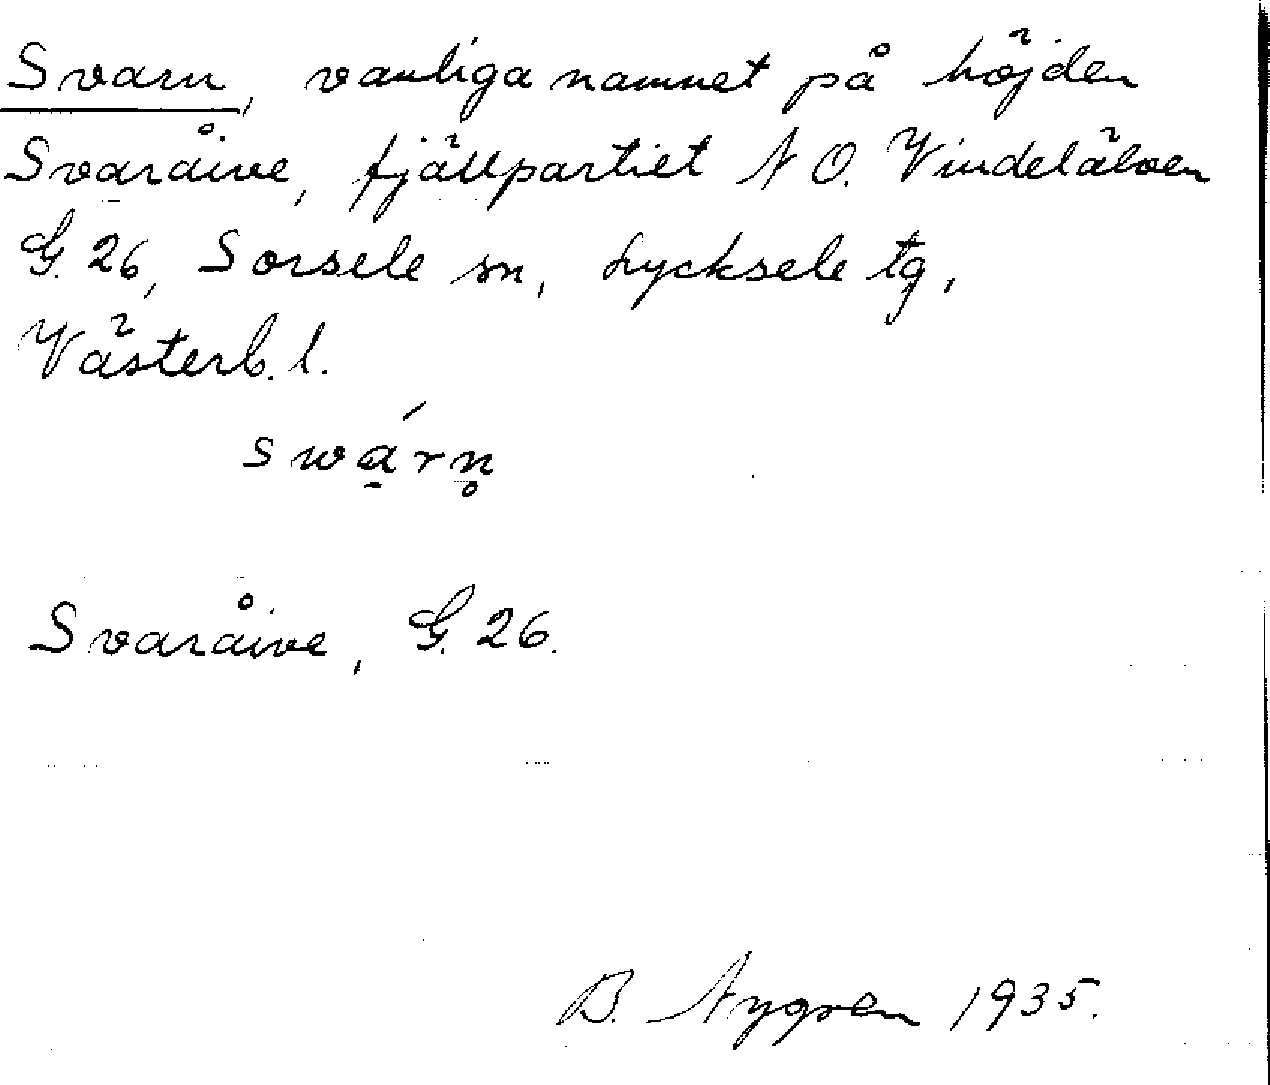 Svarn, vanliga namnet på höjden
Svaråive, fjällpartiet N O. Vindelälven
G. 26, Sorsele sn, Lycksele tg,
Västerb. l.
swa̱´rn̥
Svaråive, G. 26.
B. Nygren 1935.